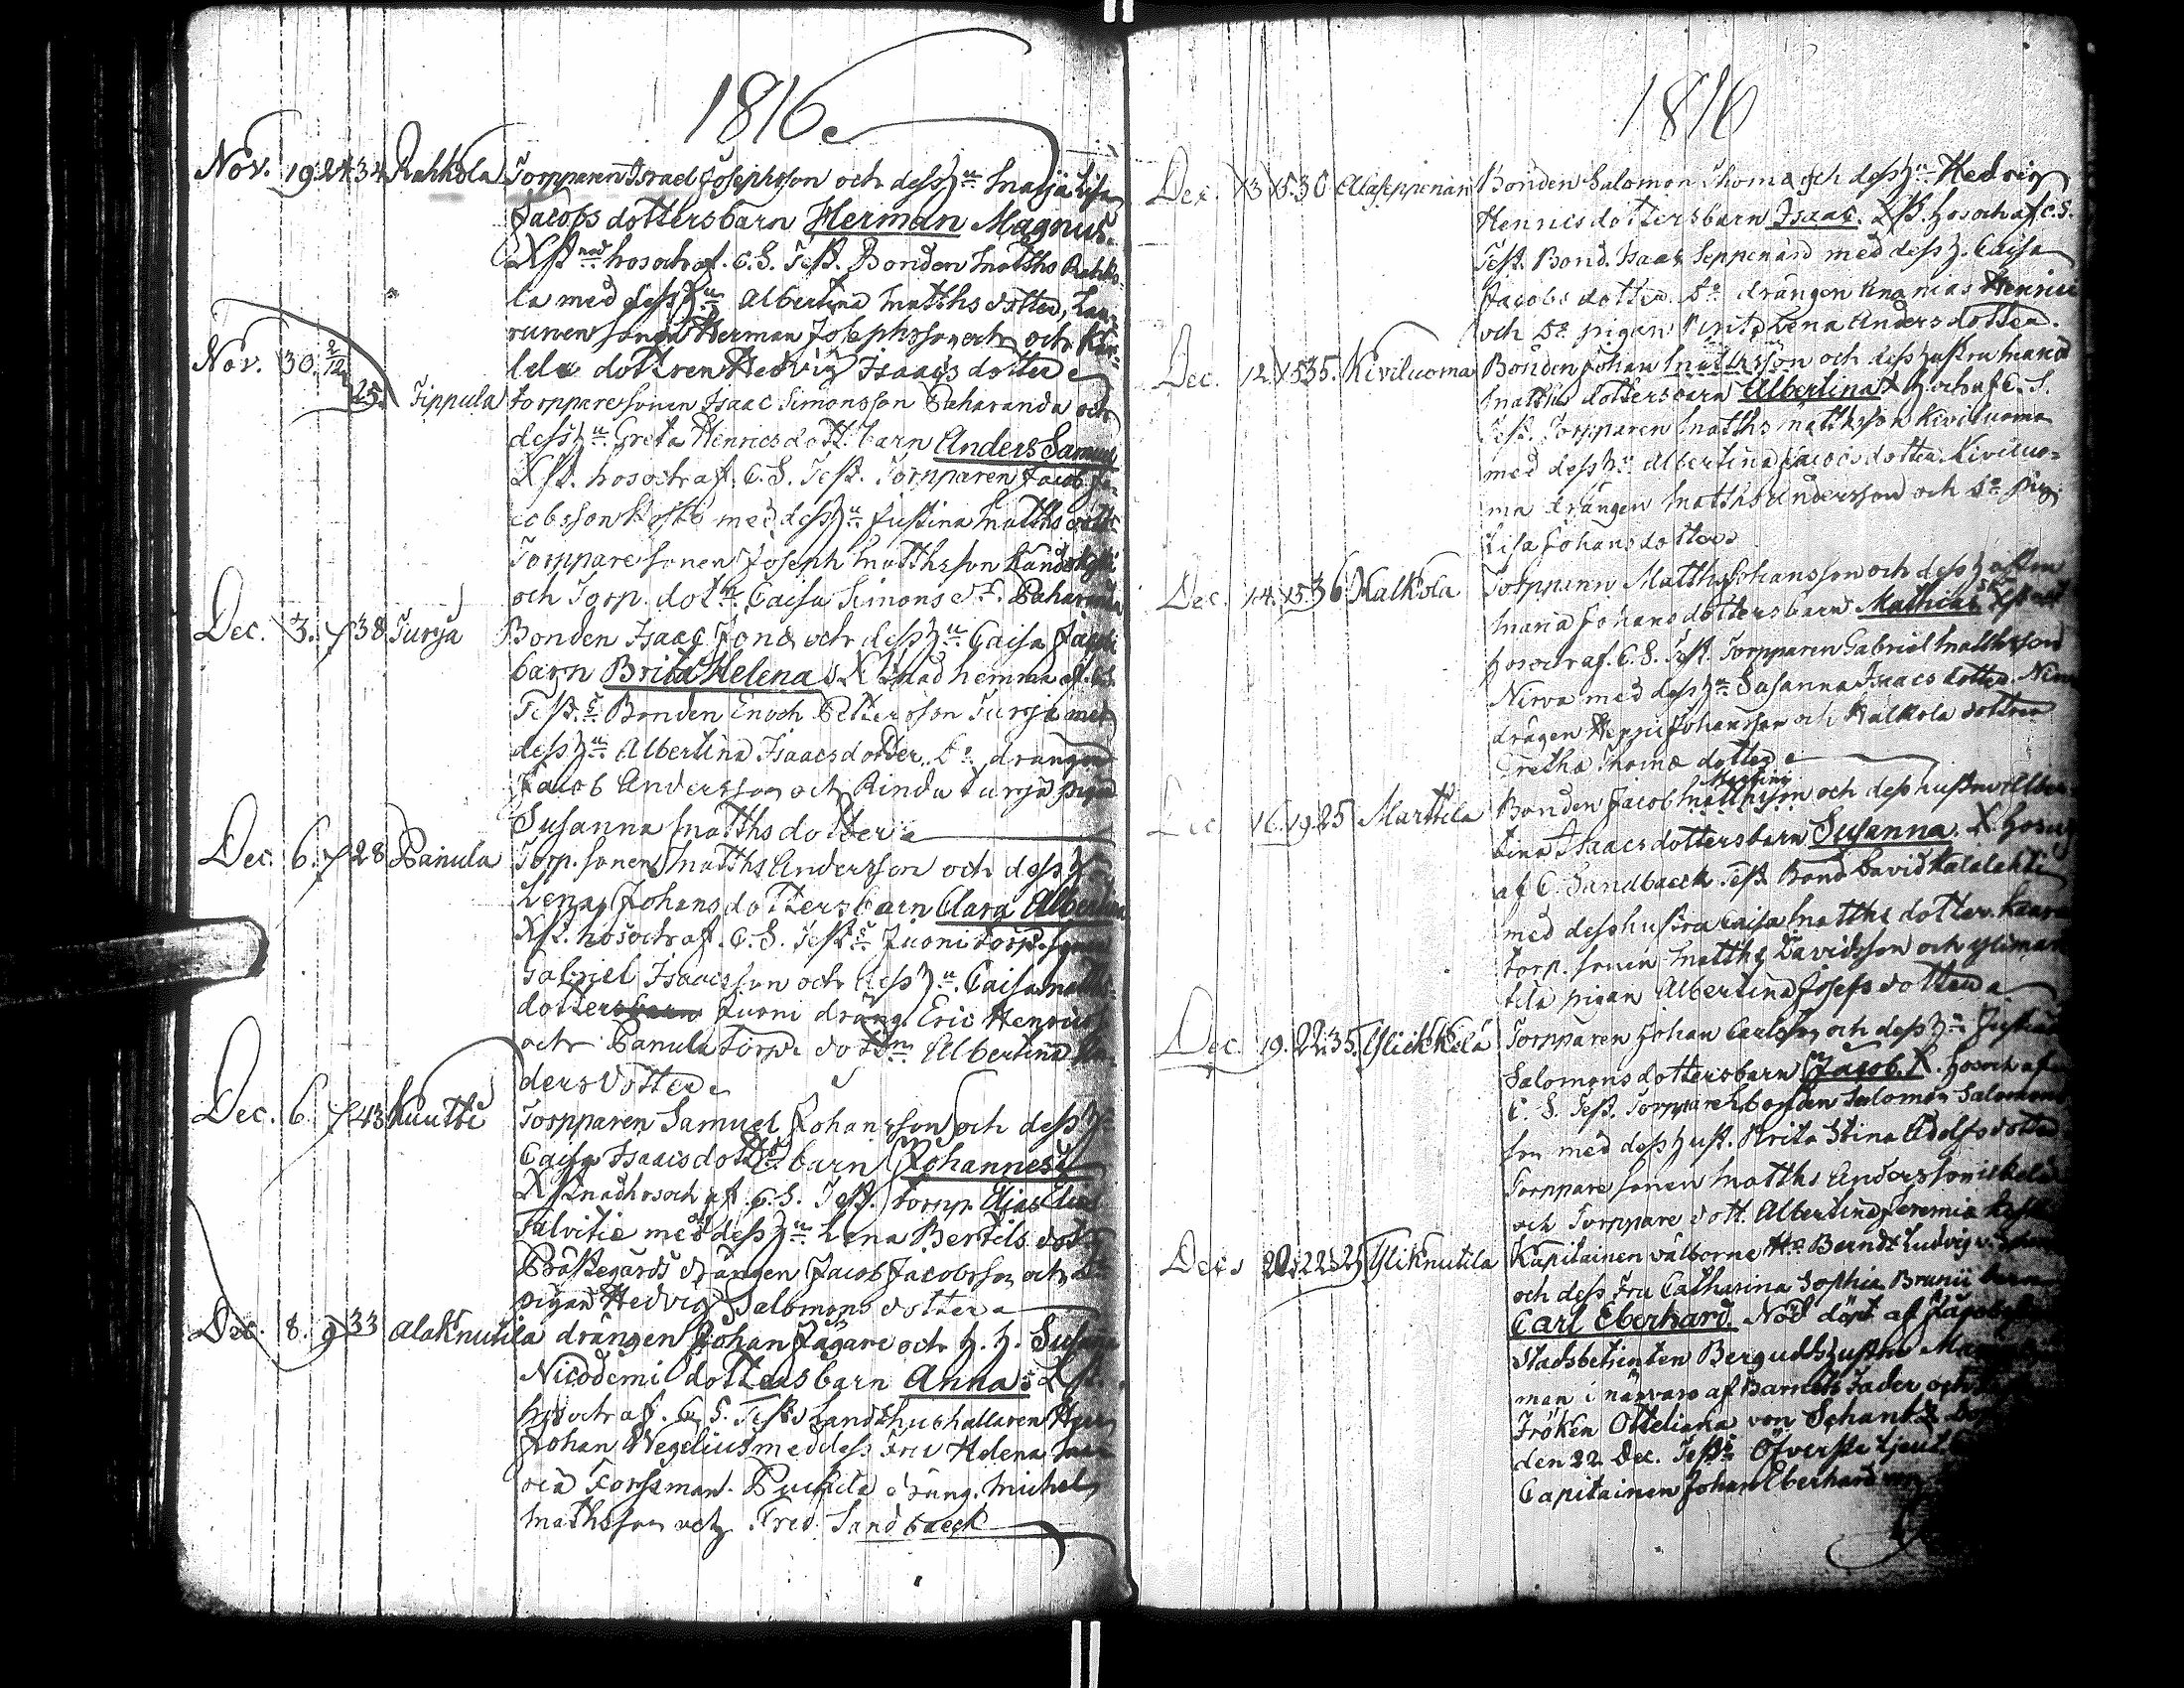 1816
Nov. 19. 24 34 Rahkola Torpparen Israel Josephsson och dess hu Maja Lisa
Jacobs dotters barn Herman Magnus.
Xst nad hos och af. C. S. Test. Bonden Matths Rahko-
la med dess hu Albertina Matths dotter, Lau-
runen sonen Herman Josephsson och
lela dottren Hedvig Isaacs dotter
Nov. 30. 2/12 25. Tippula torpparesonen Isaac Simonsson Paharanda och
dess hu Greta Henrics dott. barn Anders Samuel
Xst. hos och af. C. S. Test. Torpparen Jacob Ja-
cobsson Koski med dess hu Justina Matths dott.
Torppare sonen Joseph Matthsson
och Torp. dottn Caisa Simons dr. Paharanda
Dec. 3. 7 38 Turja Bonden Isaac Jonæ och dess hu Caisa Jacobs
barn Brita Helena Xstnad hemma af. C.S.
Test. Bonden Enoch Pettersson Turja med
dess hu Albertina Isaacs dotter. So drängen
Jacob Andersson och Rinda Turja pigan
Susanna Matths dotter
Dec. 6. 7 28 Panula Torp. sonen Matths Andersson och dess h
Lena Johans dotters barn Clara Albertina
Xst. hos och af. C. S. Test. Juoni torp. sonen
Gabriel Isaacsson och dess hu. Caisa Matths
dotters barn Juoni dräng. Eric Henrics
och Panula torp. dottn Albertina An-
ders dotter
Dec. 6. 7 43 Kuutti Torpparen Samuel Johansson och dess h
Caisa Isaacs dotts barn Johannes
Xstnad hos och af C. S. Test. torpp. Elias Elias
Talvitie med dess hu Lena Bertils dotr
Prästegårds drängen Jacob Jacobsson och So
pigan Hedvig Salomons dotter
Dec. 8. 9 33 Alaknutila drängen Johan Jägare och h. h. Susanna
Nicodemi dotters barn Anna Xst.
hos och af. C. S. Test. Landshushållaren Herr
Johan Wegelius med dess Fru Helena Ma-
ria Forssman. Puckila dräng. Michel
Mathsson och Fred. Sandbaeck
1816
Dec. 13 15. 30 Alaseppenän Bonden Salomon Thomæ och dess hu Hedvig
Henrics dotters barn Isaac. Xst. hos och af C. S.
Test. Bond. Isaac Seppenän med dess h. Caisa
Jacobs dotter. So drängen Ananias Henrics
och So pigan Brita Lena Anders dotter.
Dec. 12. 15 35. Kiviluoma Bonden Johan Mattsson och dess hustru Maria
Matths dotters barn Albertina X h. och af C. S.
Test. Torpparen Matths Matthsson Kiviluoma
med dess hu Albertina Jacobs dotter. Kiviluo-
ma drängen Matths Andersson och So pig.
Lisa Johans dotter
Dec. 14. 15. 36 Malkola Torpparen Matths Johansson och dess hustru
Maria Johans dotters barn Mathias Xstnad
hos och af. C. S. Test. Torpparen Gabriel Matthsson
Nirva med dess hu Susanna Isaacs dotter. Nirva
drägen Heppi Johansson och Malkola dottren
Gretha Thomæ dotter
Dec. 16. 19. 25 Marttila Bonden Jacob Matthsson och dess hustru Alber-
tina Isaacs dotters barn Susanna. X. hos och
af C. Sandbaeck Test. Bond David Kalalahti
med dess hustru Caisa Matths dotter.
torp. sonen Matths Davidsson och Ylimart-
tila pigan Albertina Josefs dotter
Dec. 19. 22. 35. Yliekkelä Torpparen Johan Carlsson och dess hu Justina
Salomons dotters barn Jacob X. hos och af
C. S. Test. Torpparen Salomon Salomons-
son med dess hust. Brita Stina Adolfs dotter
Torppare sonen Matths Andersson
och Torppare dott. Albertina Jeremiæ
Dec. 20. 22. 25 Yliknutila Kapitainen välborne Hr Berndt Ludvig v.
och dess Fru Catharina Sophia Brunii barn
Carl Eberhard. Nöd döpt af
Stadsbetienten Berguds hustru
man i närvaro af Barnets Fader och
Fröken Otteliana von Schantz
den 22 Dec. Test. Öfverste
Capitainen Johan Eberhard von